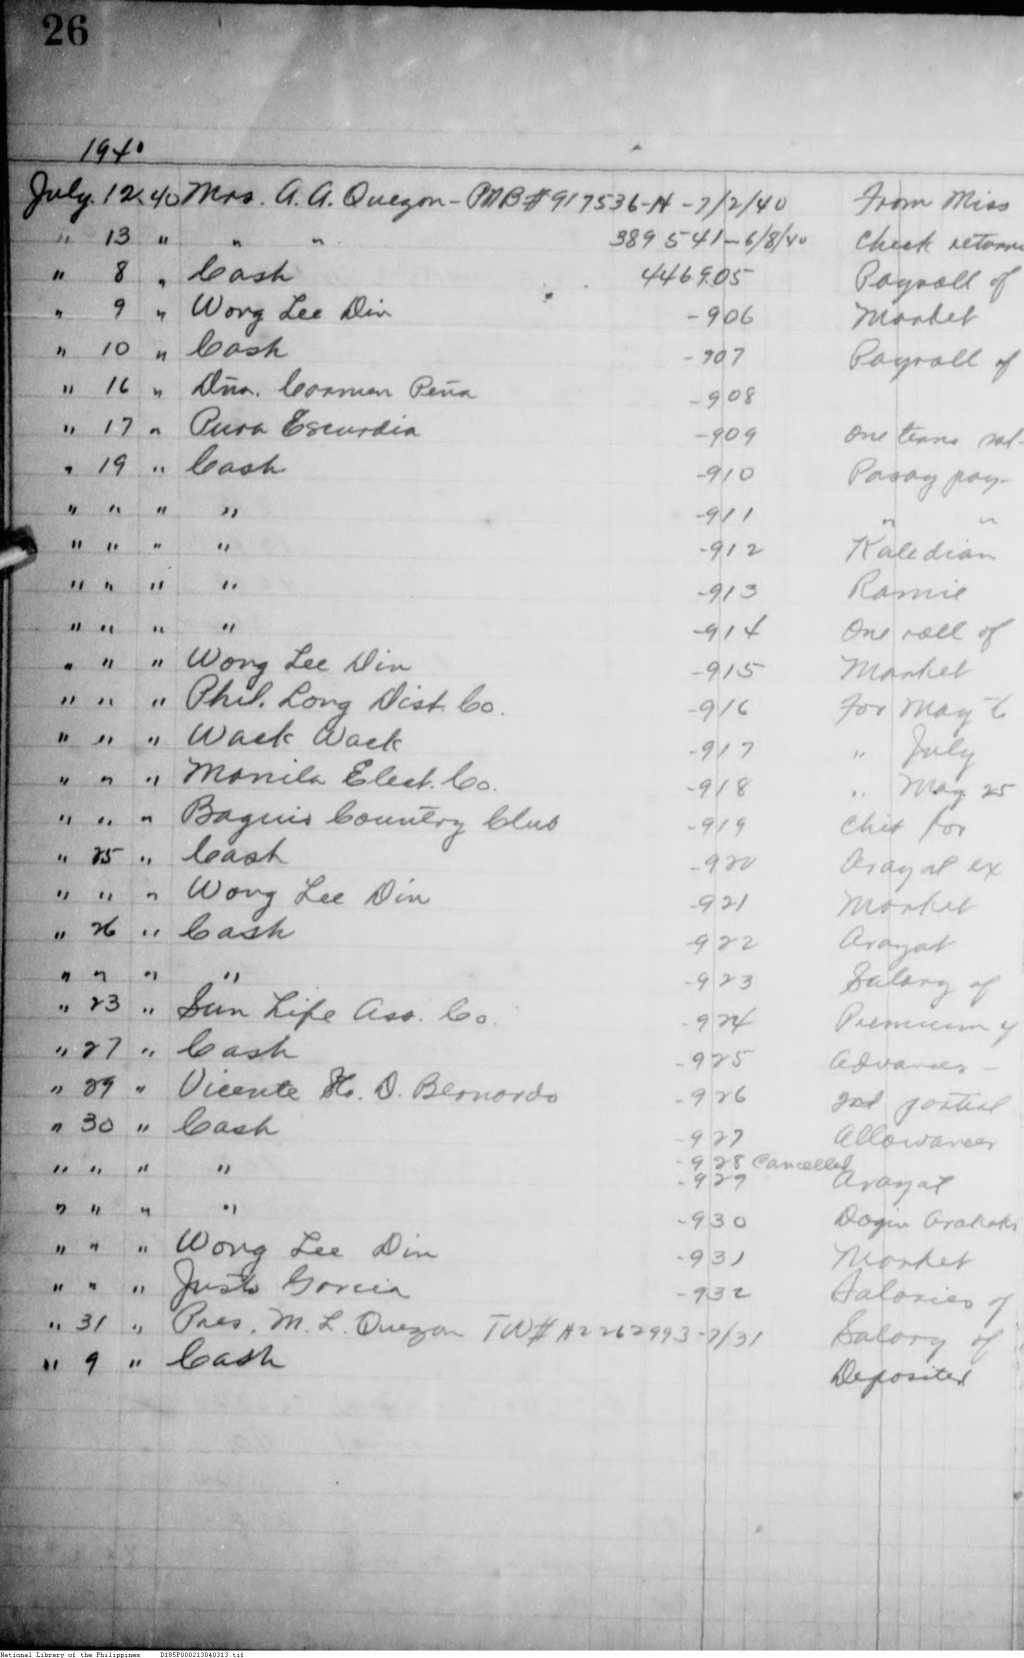 26
1940
July. 12. 40 Mrs. A. A. Quezon - PNB# 917536-H - 7/2/40 From Miss
" 13 " " " 389541 - 6/8/40 Check return
" 8 " Cash 446905 Payroll of
" 9 " Wong Lee Din -906 Market
" 10 " Cash -907 Payroll of
" 16 " Dña. Carmen Peña -908
" 17 " Pura Escurdia -909 One
" 19 " Cash -910 Pasay pay-
" " " " -911 " "
" " " " -912 Kaledian
" " " " -913 Ramie
" " " " -914 One roll of
" " " Wong Lee Din -915 Market
" " " Phil. Long Dist. Co. -916 For May
" " " Wack Wack -917 " July
" " " Manila Elect. Co. -918 " May 25
" " " Baguio Country Club -919 Chit for
" 25 " Cash -920 Arayat ex
" " " Wong Lee Din -921 Market
" 26 " Cash -922 Arayat
" " " " -923 Salary of
" 23 " Sun Life Ass. Co. -924 Premium
" 27 " Cash -925 Advances -
" 29 " Vicente D. Bernardo -926 2nd partial
" 30 " Cash -927 Allowances
" " " " -928 Cancelled
-929 Arayat
" " " " -930
" " " Wong Lee Din -931 Market
" " " Justo Garcia -932 Salaries of
" 31 " Pres. M. L. Quezon TW# A2262993 - 7/31 Salary of
" 9 " Cash Deposited
National Library of the Philippines D185P000213040313.tif